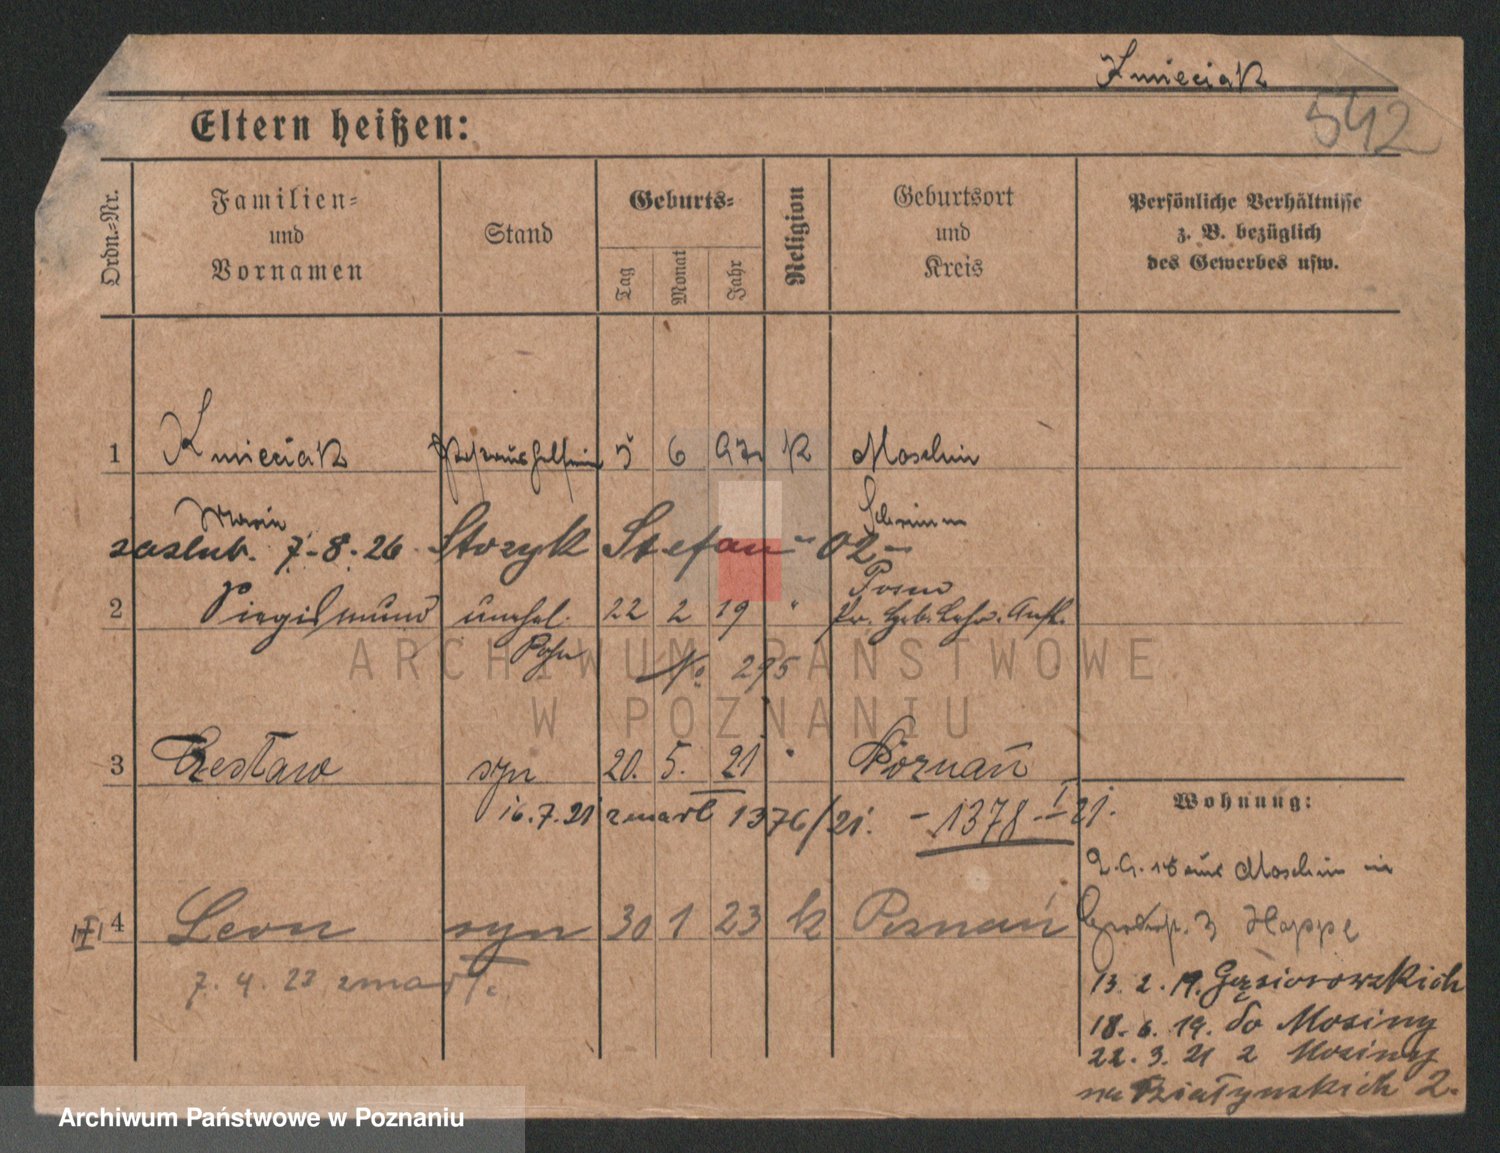 Kmieciak
542
Eltern heißen:
Ordn.-Nr.
Familien- und Vornamen
Stand
Geburts-
Tag
Monat
Jahr
Religion
Geburtsort und Kreis
Persönliche Verhältnisse
z. B. bezüglich
des Gewerbes usw.
1 Kmieciak 5 6 97 K Moschin
Maria Schrimm
zaślub. 7-8-26 Stozyk Stefan - 02 -
Posen
2 Siegismund unehel. 22 2 19 " Pr. Geb. Lehr. Anst.
Sohn No 295
3 Czesław syn 20. 5. 21 " Poznań
16.7.21 zmarł 1376/21. - 1378 - I 21.
Wohnung:
2.9.18 aus Moschin in
4 Leon syn 30 1 23 k Poznań
3 Hoppe
7. 4. 23 zmarł.
13. 2. 19. Gąsiorowskich
18. 6. 19. do Mosiny
22. 3. 21 z Mosiny
na Działyńskich 2.
ARCHIWUM PAŃSTWOWE
W POZNANIU
Archiwum Państwowe w Poznaniu